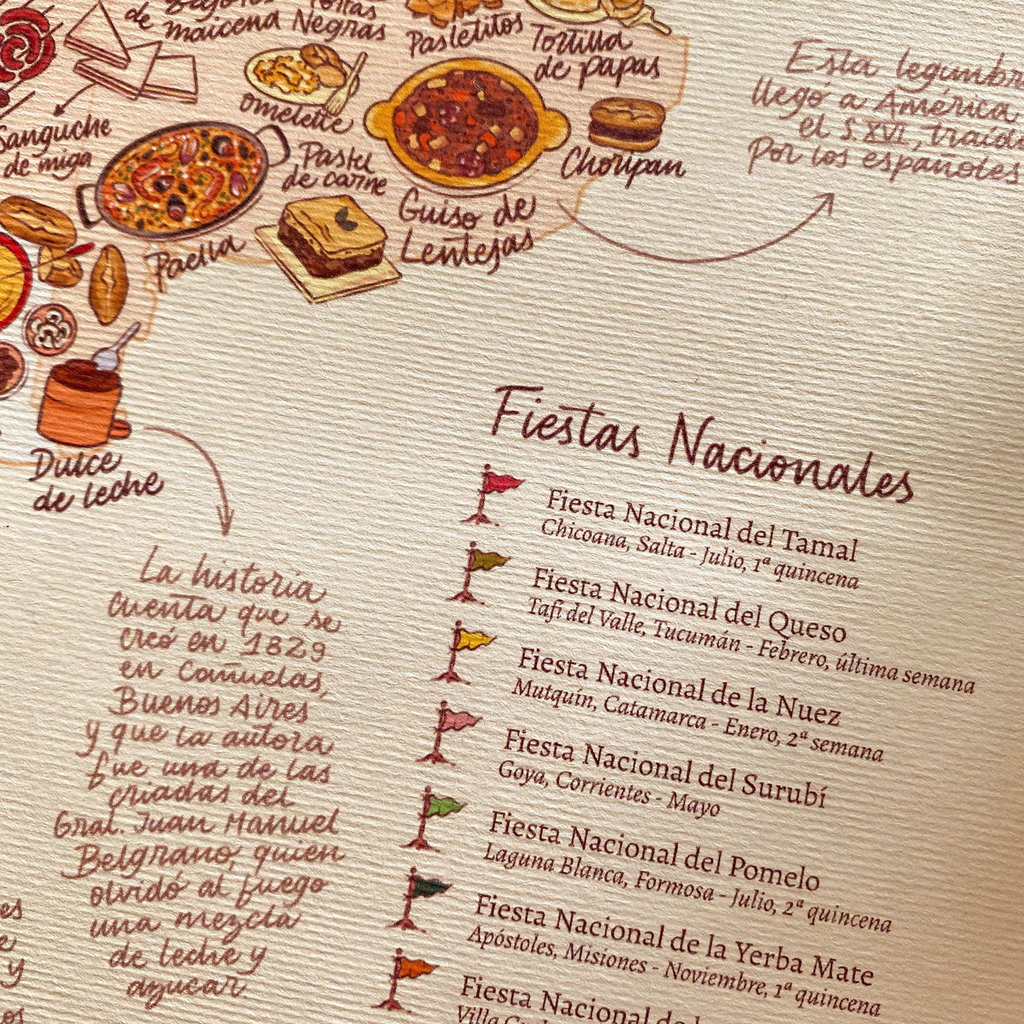 de maicena
Negras
Pastelitos
Tortilla
de papas
omelette
Sanguche
de miga
Pastel
de carne
Choripan
Paella
Guiso de
Lentejas
Esta legumbre
llegó a América
el S.XVI, traída
por los españoles
Dulce
de leche
La historia
cuenta que se
creó en 1829
en Cañuelas,
Buenos Aires
y que la autora
fue una de las
criadas del
Gral. Juan Manuel
Belgrano, quien
olvidó al fuego
una mezcla
de leche y
azucar.
Fiestas Nacionales
Fiesta Nacional del Tamal
Chicoana, Salta - Julio, 1ª quincena
Fiesta Nacional del Queso
Tafí del Valle, Tucumán - Febrero, última semana
Fiesta Nacional de la Nuez
Mutquín, Catamarca - Enero, 2ª semana
Fiesta Nacional del Surubí
Goya, Corrientes - Mayo
Fiesta Nacional del Pomelo
Laguna Blanca, Formosa - Julio, 2ª quincena
Fiesta Nacional de la Yerba Mate
Apóstoles, Misiones - Noviembre, 1ª quincena
Fiesta Nacional de